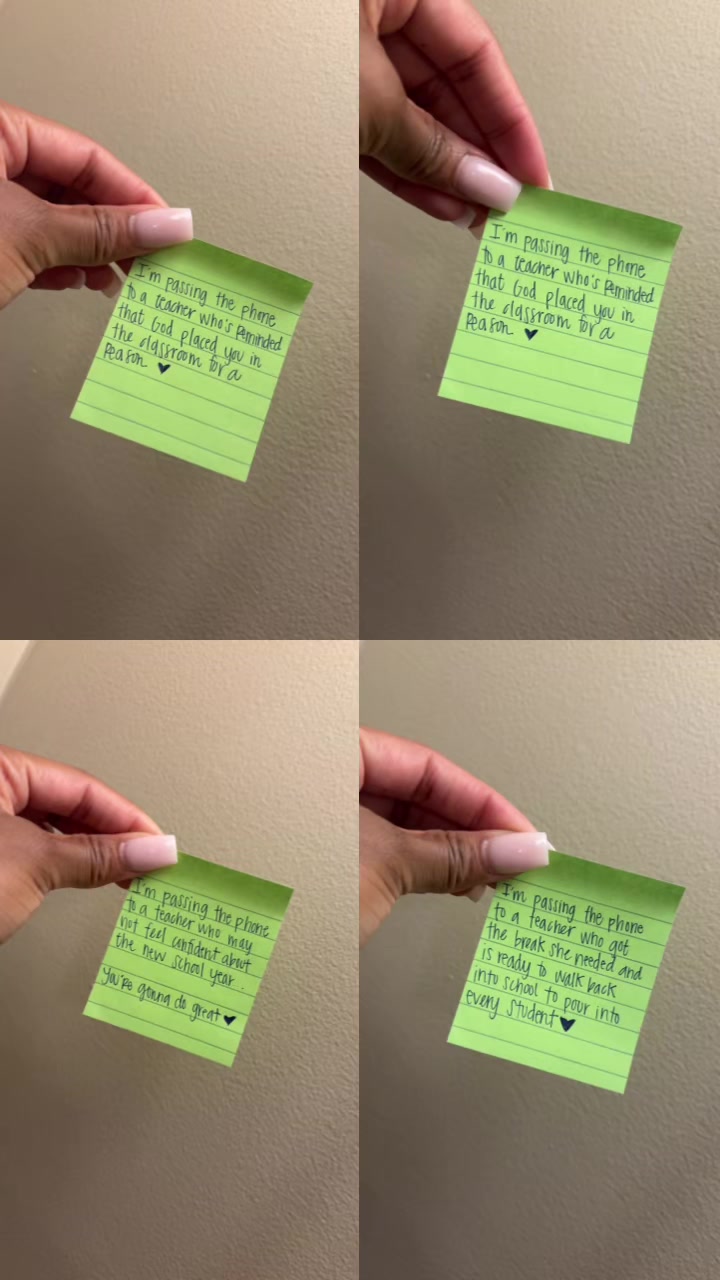 I'm passing the phone
to a teacher who's Reminded
that God placed you in
the classroom for a
Reason. ♥
I'm passing the phone
to a teacher who's Reminded
that God placed you in
the classroom for a
Reason. ♥
I'm passing the phone
to a teacher who may
not feel confident about
the new school year.
You're gonna do great ♥
I'm passing the phone
to a teacher who got
the break she needed and
is ready to walk back
into school to pour into
every student ♥